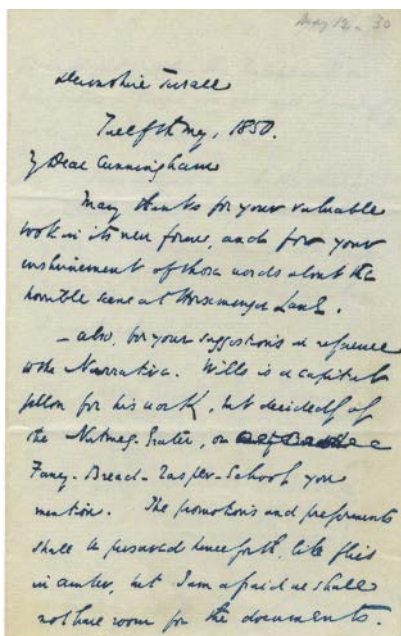 May 12 - 30
Devonshire Terrace
Twelfth May, 1850.
My Dear Cunningham
Many thanks for your valuable
book in its new form, and for your
enshrinement of those words about the
horrible scene at Horsemonger Lane.
– also, for your suggestions in reference
to the Narrative. Wills is a capital
fellow for his work, but decidedly of
the Nutmeg-Grater, or
Fancy-Bread-Rasper-School you
mention. The promotions and preferments
shall be preserved henceforth, like flies
in amber, but I am afraid we shall
not have room for the documents.